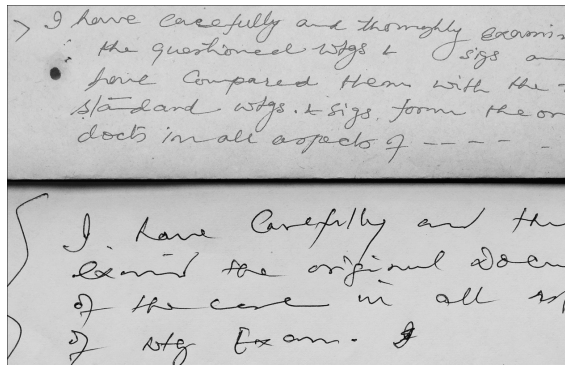 I have carefully and thoroughly
the questioned wtgs & sigs
have compared them with the
standard wtgs. & sigs. form the or
docts in all aspects of - - - - -
I have Carefully and the
the original Docu
of the case in all
of wtg Exam.